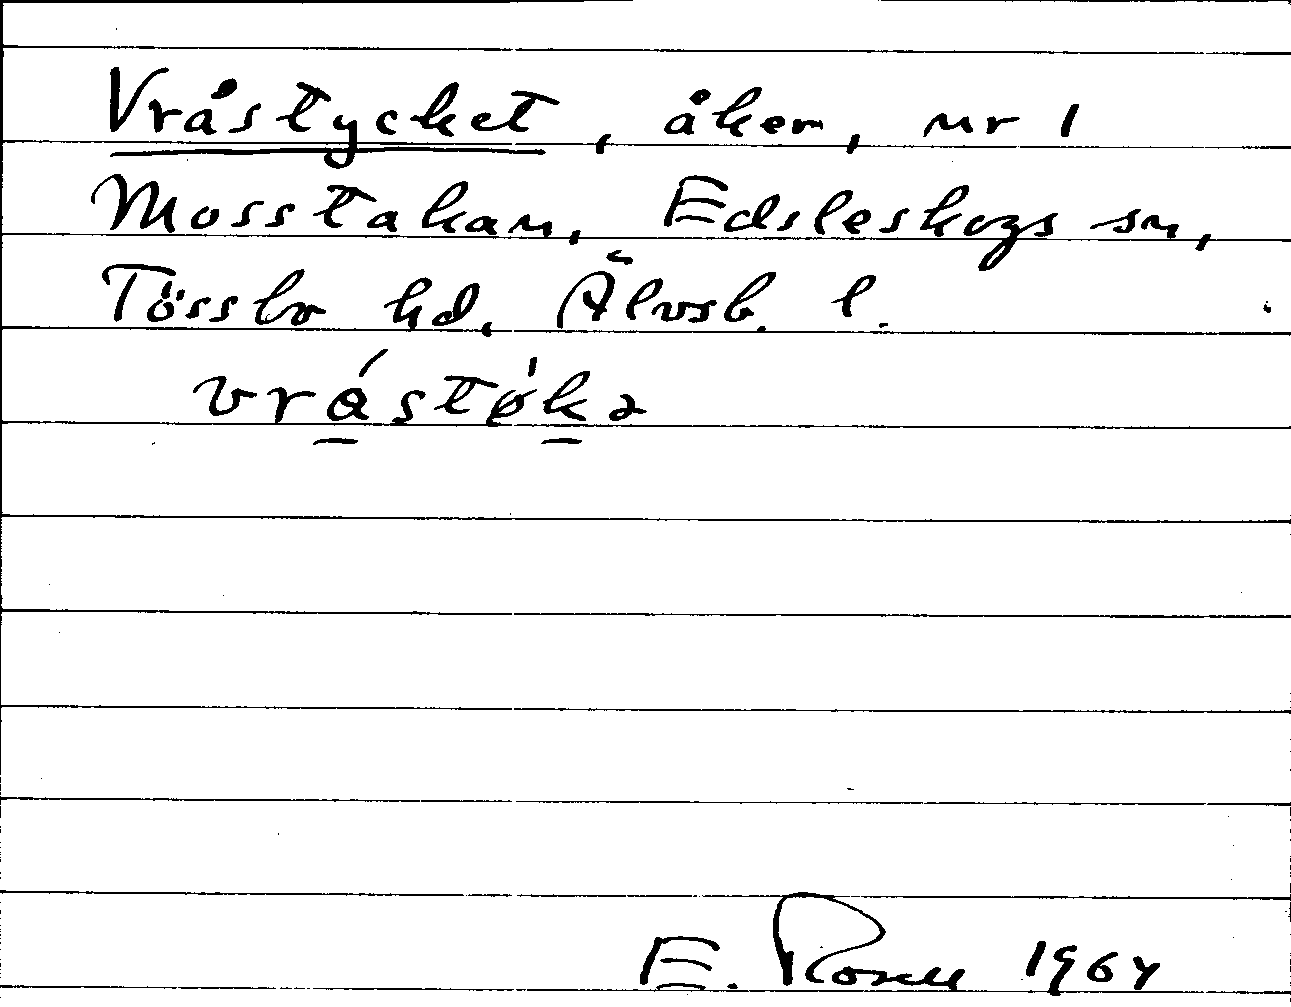 Vråstycket, åker, nr 1
Mosstakan, Edsleskogs sn,
Tössbo hd, Älvsb. l.
vrástø̍kə
E. Rosell 1964